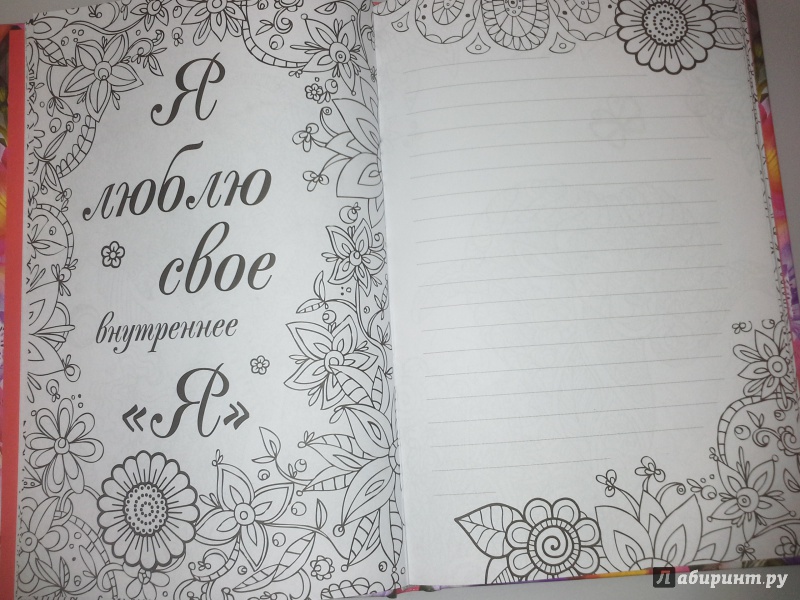 Я
люблю
свое
внутреннее
«Я»
Лабиринт.ру